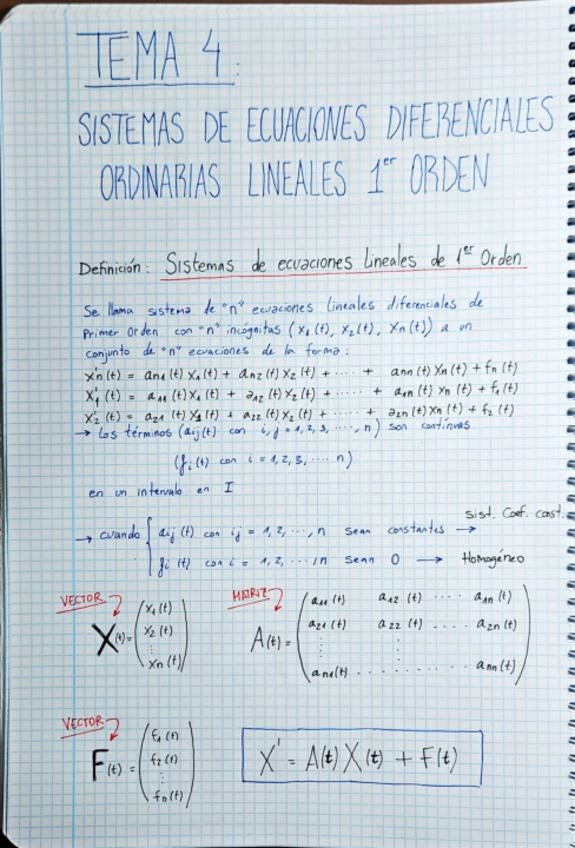 TEMA 4:
SISTEMAS DE ECUACIONES DIFERENCIALES
ORDINARIAS LINEALES 1er ORDEN
Definición: Sistemas de ecuaciones Lineales de 1er Orden
Se llama sistema de "n" ecuaciones Lineales diferenciales de
Primer Orden con "n" incógnitas (x1(t), x2(t), xn(t)) a un
conjunto de "n" ecuaciones de la forma:
x'n(t) = an1(t)x1(t) + an2(t)x2(t) + ..... + ann(t)xn(t) + fn(t)
x'1(t) = a11(t)x1(t) + a12(t)x2(t) + ..... + a1n(t)xn(t) + f1(t)
x'2(t) = a21(t)x1(t) + a22(t)x2(t) + ..... + a2n(t)xn(t) + f2(t)
→ Los términos (aij(t) con i,j = 1,2,3, ...., n) son continuas
(fi(t) con i = 1,2,3, .... n)
en un intervalo en I
Sist. Coef. const.
→ cuando { aij(t) con ij = 1,2, ..., n sean constantes →
fi(t) con i = 1,2, ..., n sean 0 → Homogéneo
VECTOR MATRIZ
X(t) = (x1(t) x2(t) ⋮ xn(t)) A(t) = (a11(t) a12(t) .... a1n(t)
a21(t) a22(t) .... a2n(t)
⋮ ⋮
an1(t) .......... ann(t))
VECTOR
F(t) = (f1(t) f2(t) ⋮ fn(t))
X' = A(t)X(t) + F(t)